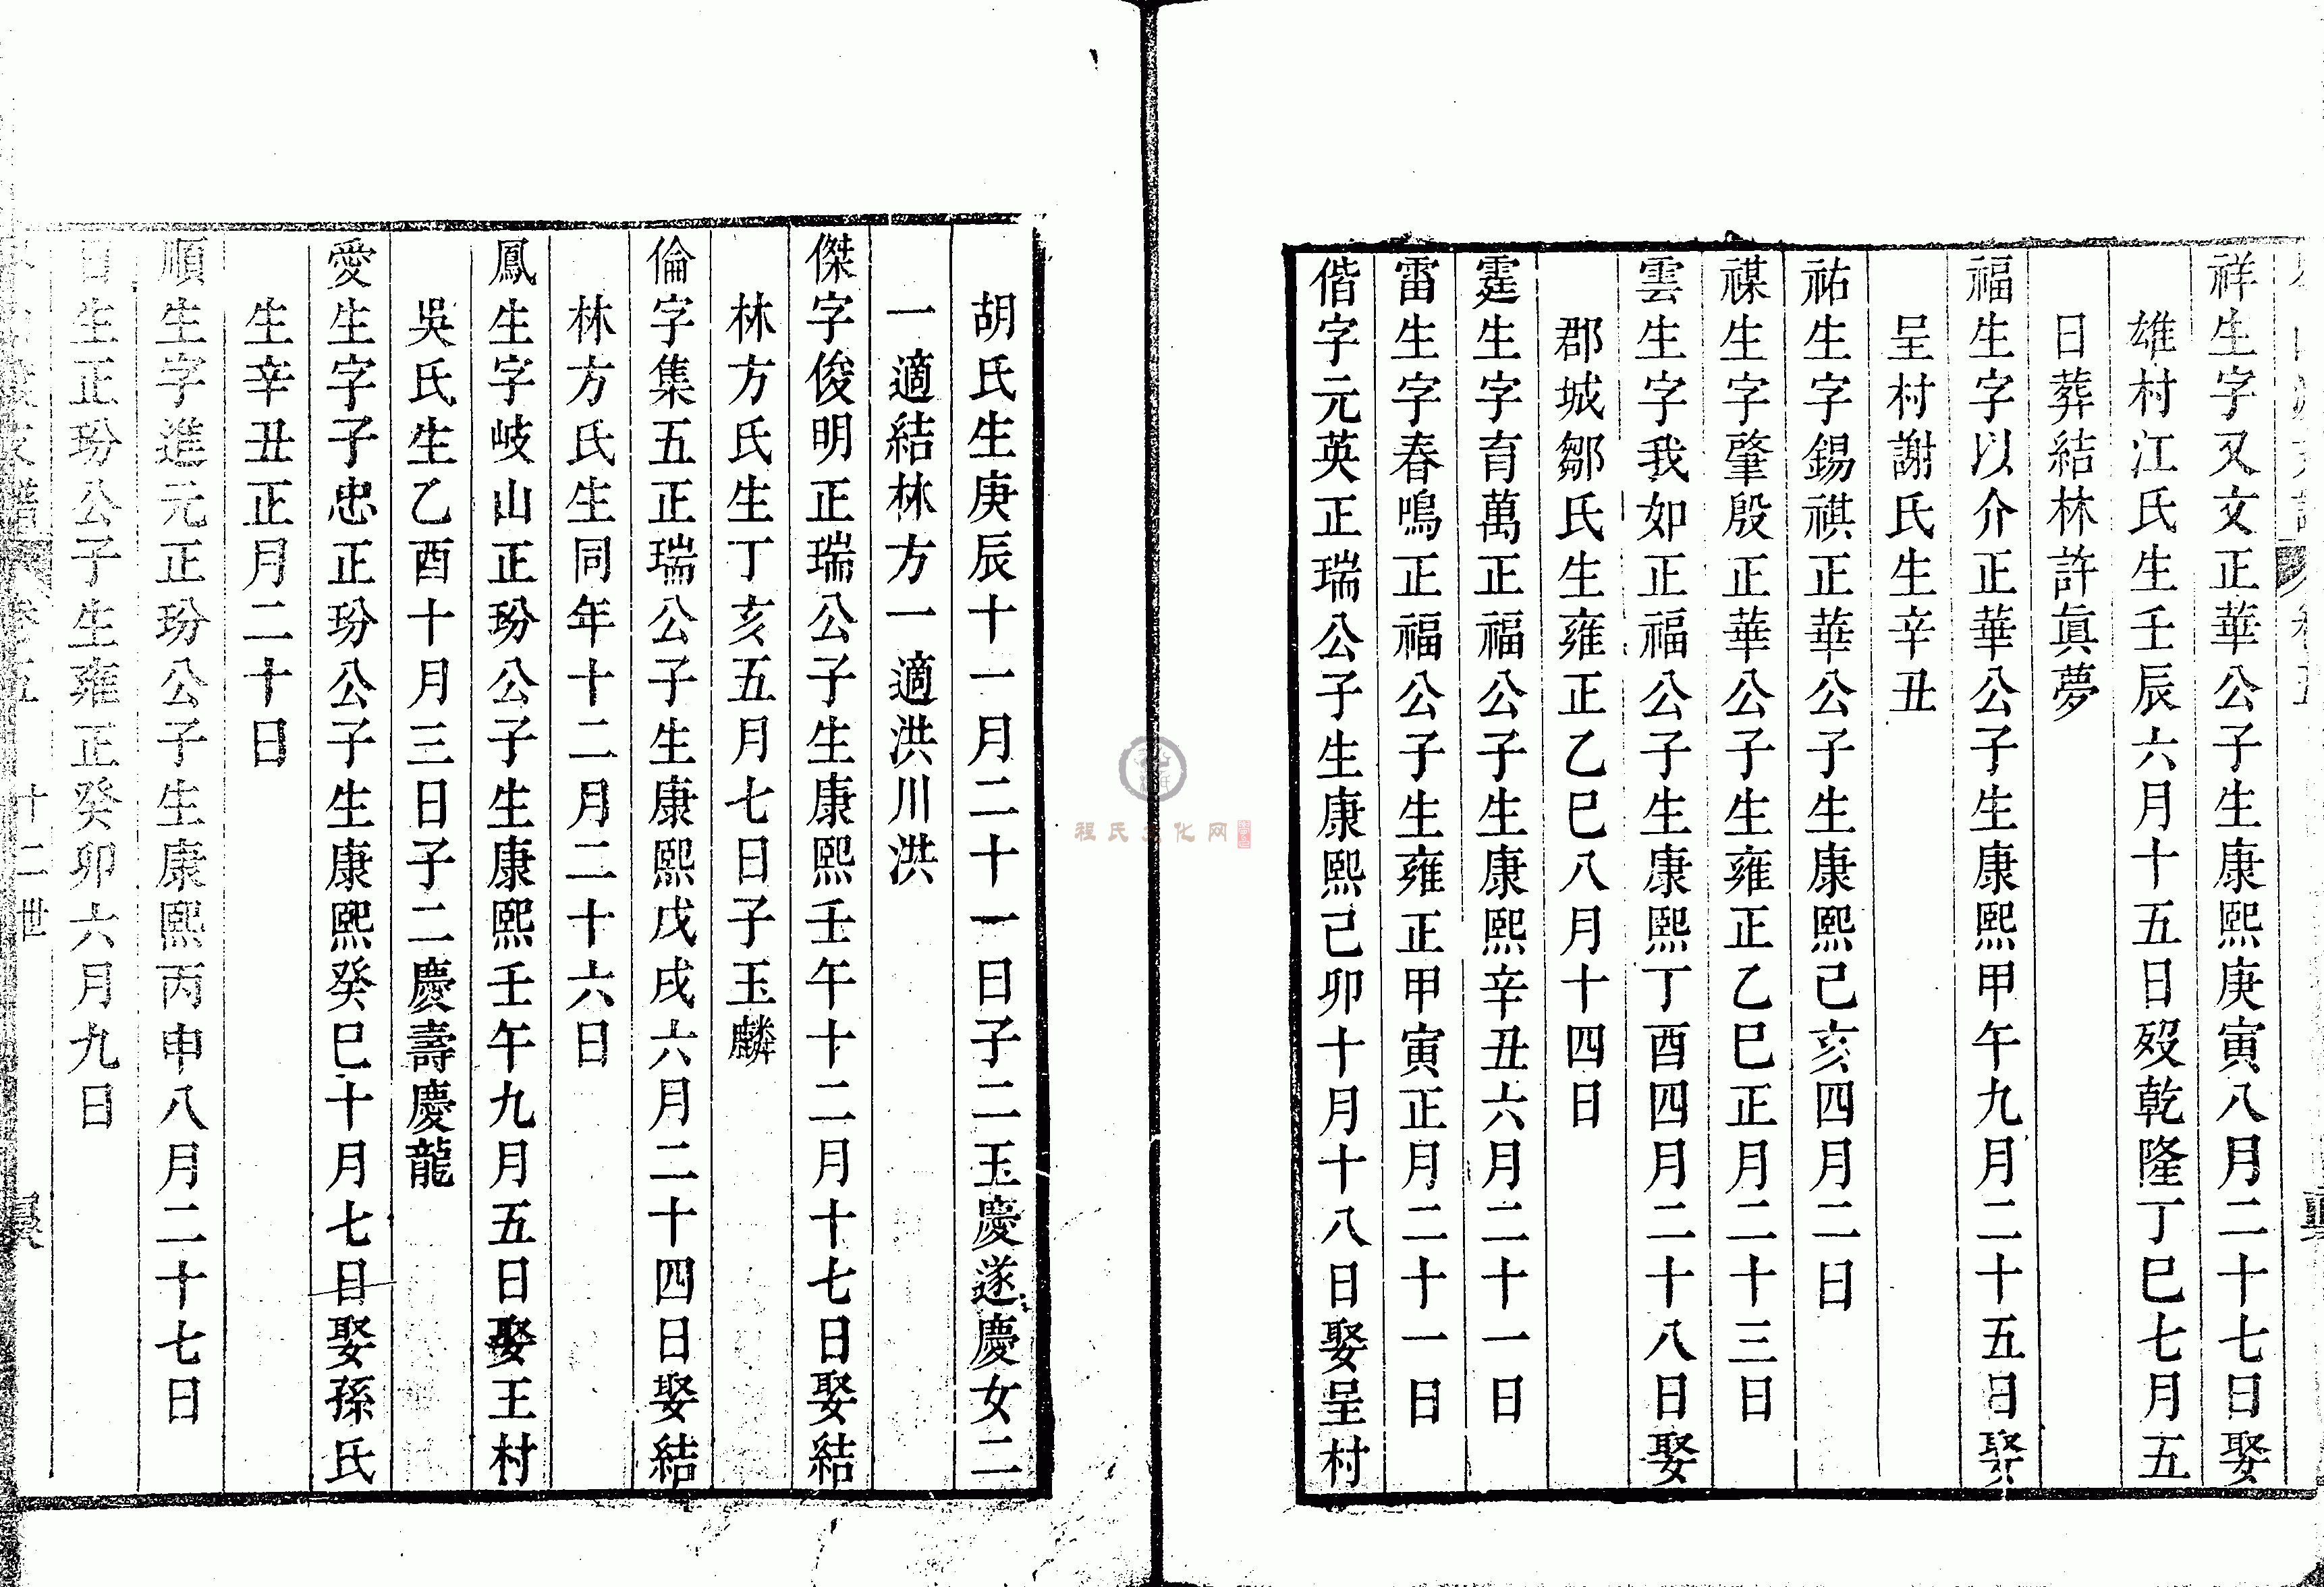 祥生字又文正華公子生康熙庚寅八月二十七日娶
雄村江氏生壬辰六月十五日歿乾隆丁巳七月五
日葬結林許眞夢
福生字以介正華公子生康熙甲午九月二十五日娶
呈村謝氏生辛丑
祐生字錫祺正華公子生康熙己亥四月二日
禖生字肇殷正華公子生雍正乙巳正月二十三日
雲生字我如正福公子生康熙丁酉四月二十八日娶
郡城鄒氏生雍正乙巳八月十四日
霆生字育萬正福公子生康熙辛丑六月二十一日
雷生字春鳴正福公子生雍正甲寅正月二十一日
偕字元英正瑞公子生康熙己卯十月十八日娶呈村
胡氏生庚辰十一月二十一日子二玉慶遂慶女二
一適結林方一適洪川洪
傑字俊明正瑞公子生康熙壬午十二月十七日娶結
林方氏生丁亥五月七日子玉麟
倫字集五正瑞公子生康熙戊戌六月二十四日娶結
林方氏生同年十二月二十六日
鳳生字岐山正玢公子生康熙壬午九月五日娶王村
吳氏生乙酉十月三日子二慶壽慶龍
愛生字子忠正玢公子生康熙癸巳十月七日娶孫氏
生辛丑正月二十日
順生字進元正玢公子生康熙丙申八月二十七日
日生正玢公子生雍正癸卯六月九日
支譜 卷五 十二世
程氏文化网